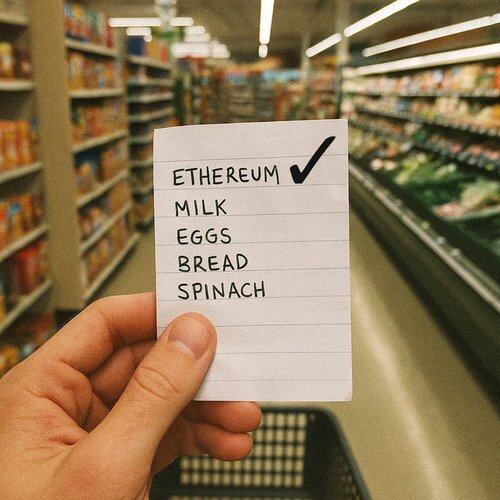 ETHEREUM ✓
MILK
EGGS
BREAD
SPINACH